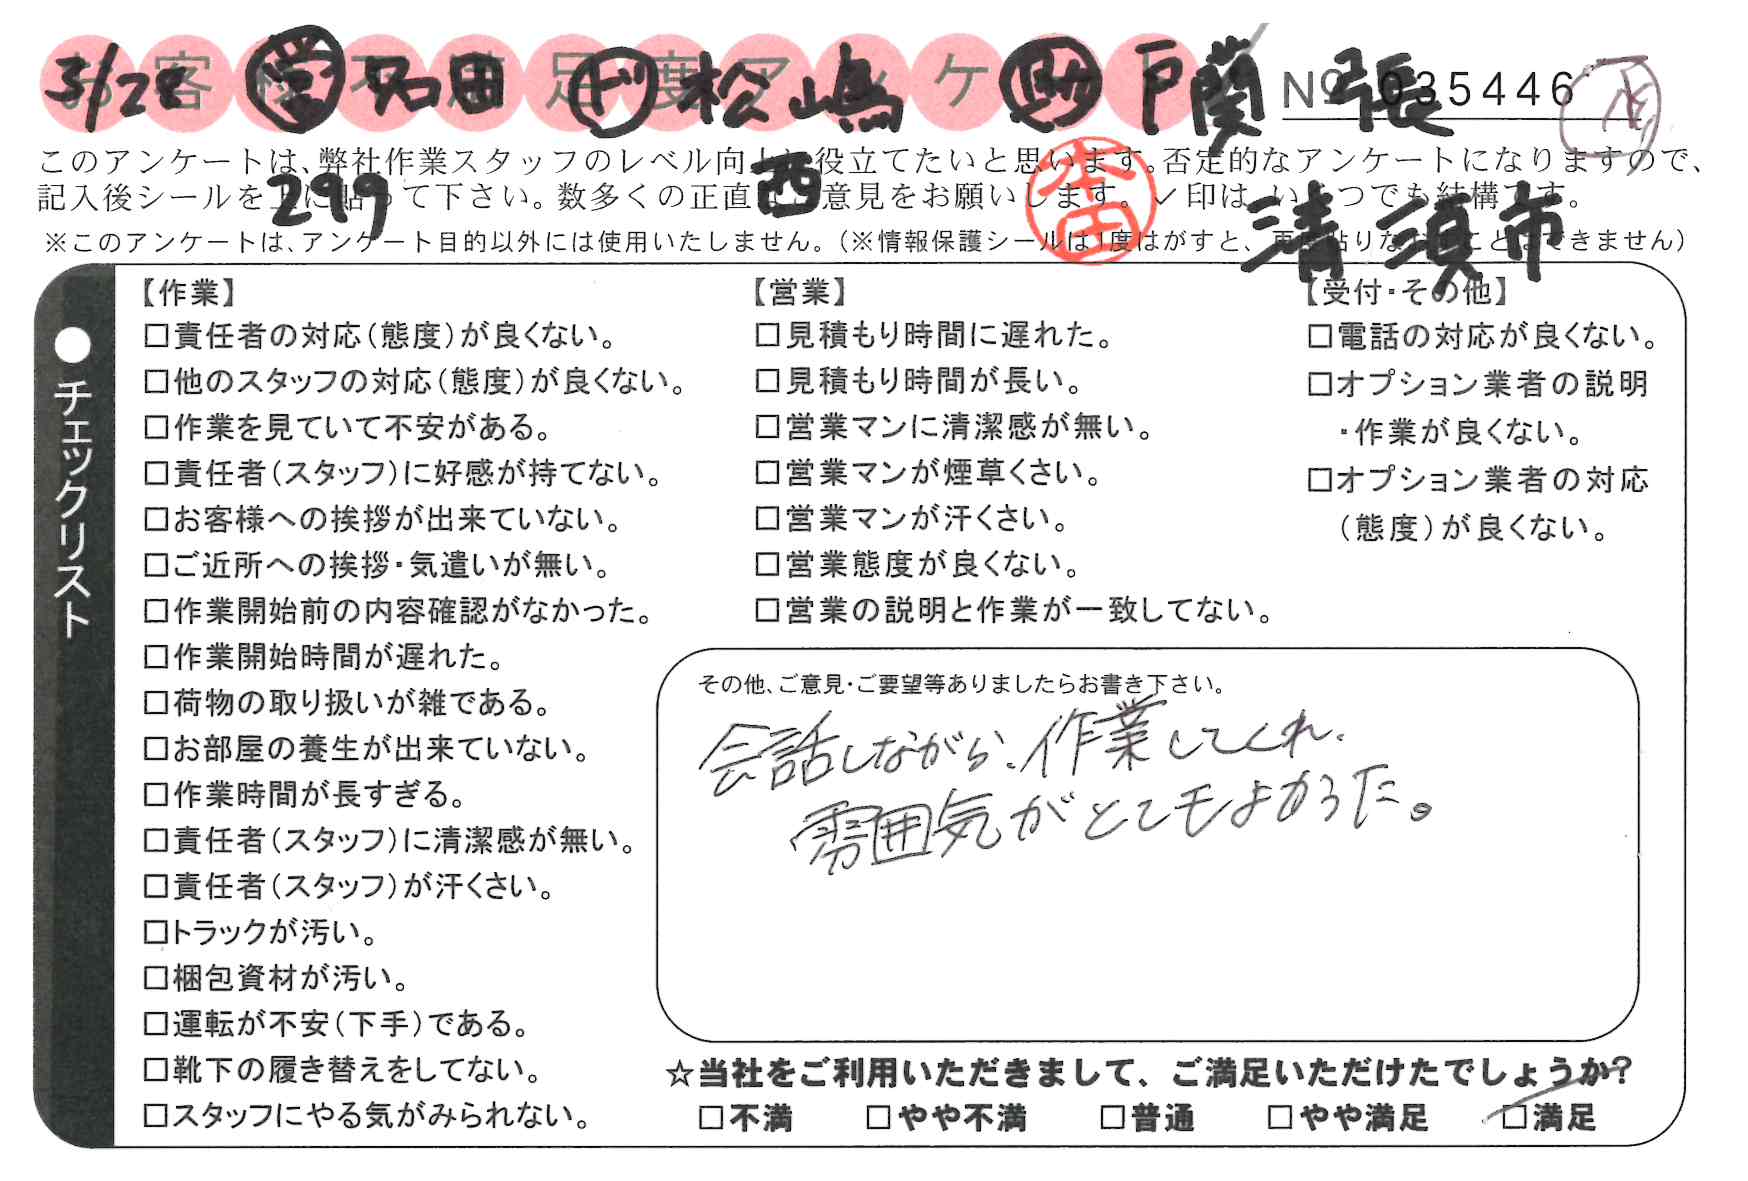 お客様不満足度アンケート
3/28 営 拓田 ド 松嶋 助 戸蘭 張
№ 035446
このアンケートは、弊社作業スタッフのレベル向上に役立てたいと思います。否定的なアンケートになりますので、
記入後シールを上に貼って下さい。数多くの正直なご意見をお願いします。✓印は、いくつでも結構です。
299 西 清須市
※このアンケートは、アンケート目的以外には使用いたしません。(※情報保護シールは1度はがすと、再度貼りなおすことはできません)
●チェックリスト
【作業】
□責任者の対応(態度)が良くない。
□他のスタッフの対応(態度)が良くない。
□作業を見ていて不安がある。
□責任者(スタッフ)に好感が持てない。
□お客様への挨拶が出来ていない。
□ご近所への挨拶・気遣いが無い。
□作業開始前の内容確認がなかった。
□作業開始時間が遅れた。
□荷物の取り扱いが雑である。
□お部屋の養生が出来ていない。
□作業時間が長すぎる。
□責任者(スタッフ)に清潔感が無い。
□責任者(スタッフ)が汗くさい。
□トラックが汚い。
□梱包資材が汚い。
□運転が不安(下手)である。
□靴下の履き替えをしてない。
□スタッフにやる気がみられない。
【営業】
□見積もり時間に遅れた。
□見積もり時間が長い。
□営業マンに清潔感が無い。
□営業マンが煙草くさい。
□営業マンが汗くさい。
□営業態度が良くない。
□営業の説明と作業が一致してない。
【受付・その他】
□電話の対応が良くない。
□オプション業者の説明
・作業が良くない。
□オプション業者の対応
(態度)が良くない。
その他、ご意見・ご要望等ありましたらお書き下さい。
会話しながら、作業してくれ、
雰囲気がとてもよかった。
☆当社をご利用いただきまして、ご満足いただけたでしょうか?
□不満 □やや不満 □普通 □やや満足 □満足